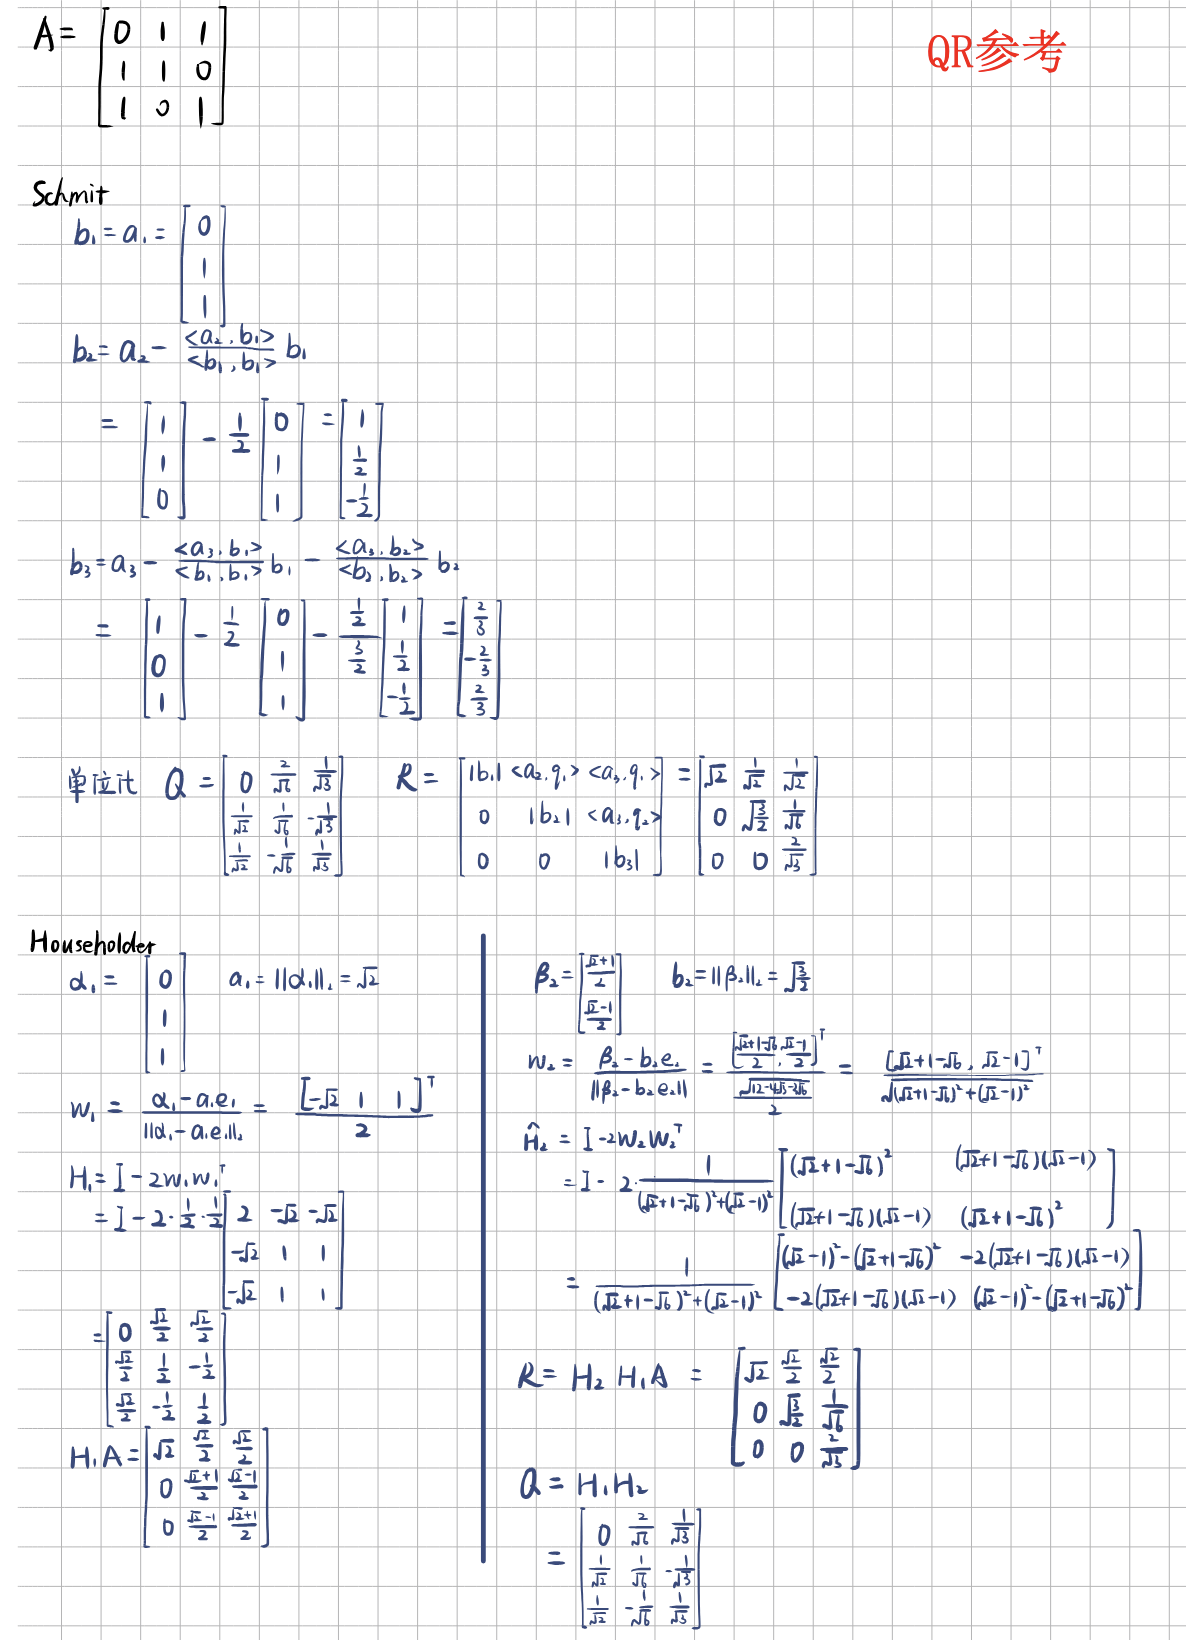 A = [0 1 1; 1 1 0; 1 0 1]
QR参考
Schmit
b₁ = a₁ = [0; 1; 1]
b₂ = a₂ - <a₂, b₁>/<b₁, b₁> b₁
= [1; 1; 0] - 1/2 [0; 1; 1] = [1; 1/2; -1/2]
b₃ = a₃ - <a₃, b₁>/<b₁, b₁> b₁ - <a₃, b₂>/<b₂, b₂> b₂
= [1; 0; 1] - 1/2 [0; 1; 1] - (1/2)/(3/2) [1; 1/2; -1/2] = [2/3; -2/3; 2/3]
单位化 Q = [0 2/√6 1/√3; 1/√2 1/√6 -1/√3; 1/√2 -1/√6 1/√3] R = [|b₁| <a₂, q₁> <a₃, q₁>; 0 |b₂| <a₃, q₂>; 0 0 |b₃|] = [√2 1/√2 1/√2; 0 √(3/2) 1/√6; 0 0 2/√3]
Householder
α₁ = [0; 1; 1] a₁ = ||α₁||₂ = √2
w₁ = (α₁ - a₁e₁)/||α₁ - a₁e₁||₂ = [-√2 1 1]ᵀ/2
H₁ = I - 2w₁w₁ᵀ
= I - 2·1/2·1/2 [2 -√2 -√2; -√2 1 1; -√2 1 1]
= [0 √2/2 √2/2; √2/2 1/2 -1/2; √2/2 -1/2 1/2]
H₁A = [√2 √2/2 √2/2; 0 (√2+1)/2 (√2-1)/2; 0 (√2-1)/2 (√2+1)/2]
β₂ = [(√2+1)/2; (√2-1)/2] b₂ = ||β₂||₂ = √(3/2)
w₂ = (β₂ - b₂e₂)/||β₂ - b₂e₂|| = [(√2+1-√6)/2, (√2-1)/2]ᵀ/(√(12-4√3-2√6)/2) = [√2+1-√6, √2-1]ᵀ/√((√2+1-√6)²+(√2-1)²)
Ĥ₂ = I - 2w₂w₂ᵀ
= I - 2·1/((√2+1-√6)²+(√2-1)²) [(√2+1-√6)² (√2+1-√6)(√2-1); (√2+1-√6)(√2-1) (√2+1-√6)²]
= 1/((√2+1-√6)²+(√2-1)²) [(√2-1)²-(√2+1-√6)² -2(√2+1-√6)(√2-1); -2(√2+1-√6)(√2-1) (√2-1)²-(√2+1-√6)²]
R = H₂ H₁A = [√2 √2/2 √2/2; 0 √(3/2) 1/√6; 0 0 2/√3]
Q = H₁H₂
= [0 2/√6 1/√3; 1/√2 1/√6 -1/√3; 1/√2 -1/√6 1/√3]